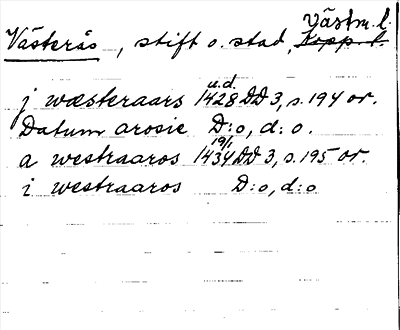 Västerås, stift o. stad, Västm. l.
j wæsteraars u.d. 1428 DD 3, s. 194 or.
Datum arosie D:o, d:o.
a westraaros 19/1 1434 DD 3, s. 195 or.
i westraaros D:o, d:o